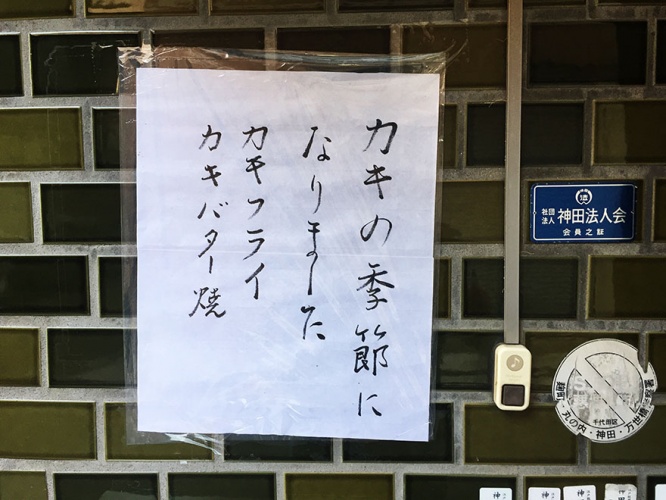 カキの季節に
なりました
カキフライ
カキバター焼
社団法人 神田法人会
会員之証
千代田区
丸の内・神田・万世橋
神
神
神